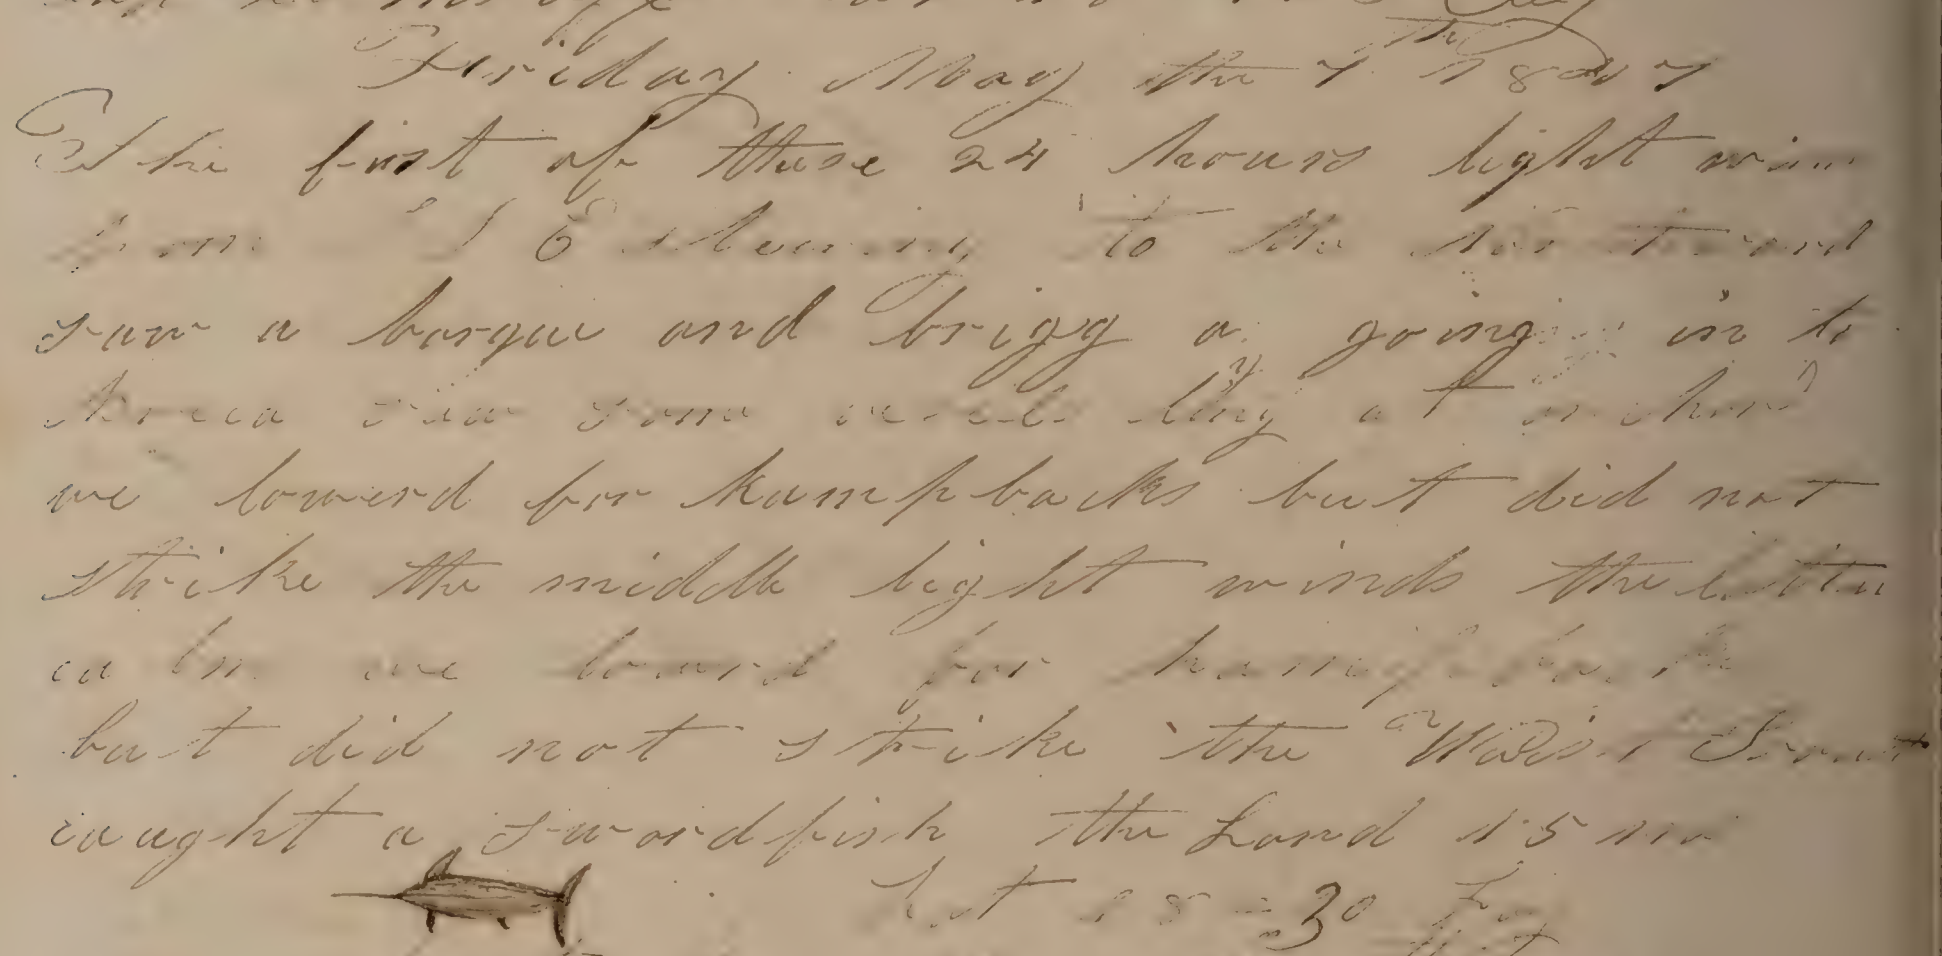 Friday May the 7 1847
The first of these 24 hours light win
from S E stearing to the northward
saw a barque and brigg a going in to
saw some vessels lay at anchor
we lowerd for humpbacks but did not
strike the middle light winds the latter
calm we lowerd for humpbacks
but did not strike the
caught a swordfish the Land 15
Lat 18 = 30